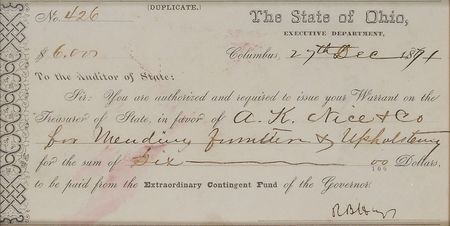 (DUPLICATE.)
No. 426
The State of Ohio,
EXECUTIVE DEPARTMENT,
$ 6.00
Columbus, 27th Dec 1871
To the Auditor of State:
Sir: You are authorized and required to issue your Warrant on the
Treasurer of State, in favor of A. K. Nice & Co
for Mending furniture & Upholstering
for the sum of Six 00/100 Dollars,
to be paid from the Extraordinary Contingent Fund of the Governor.
RBHayes